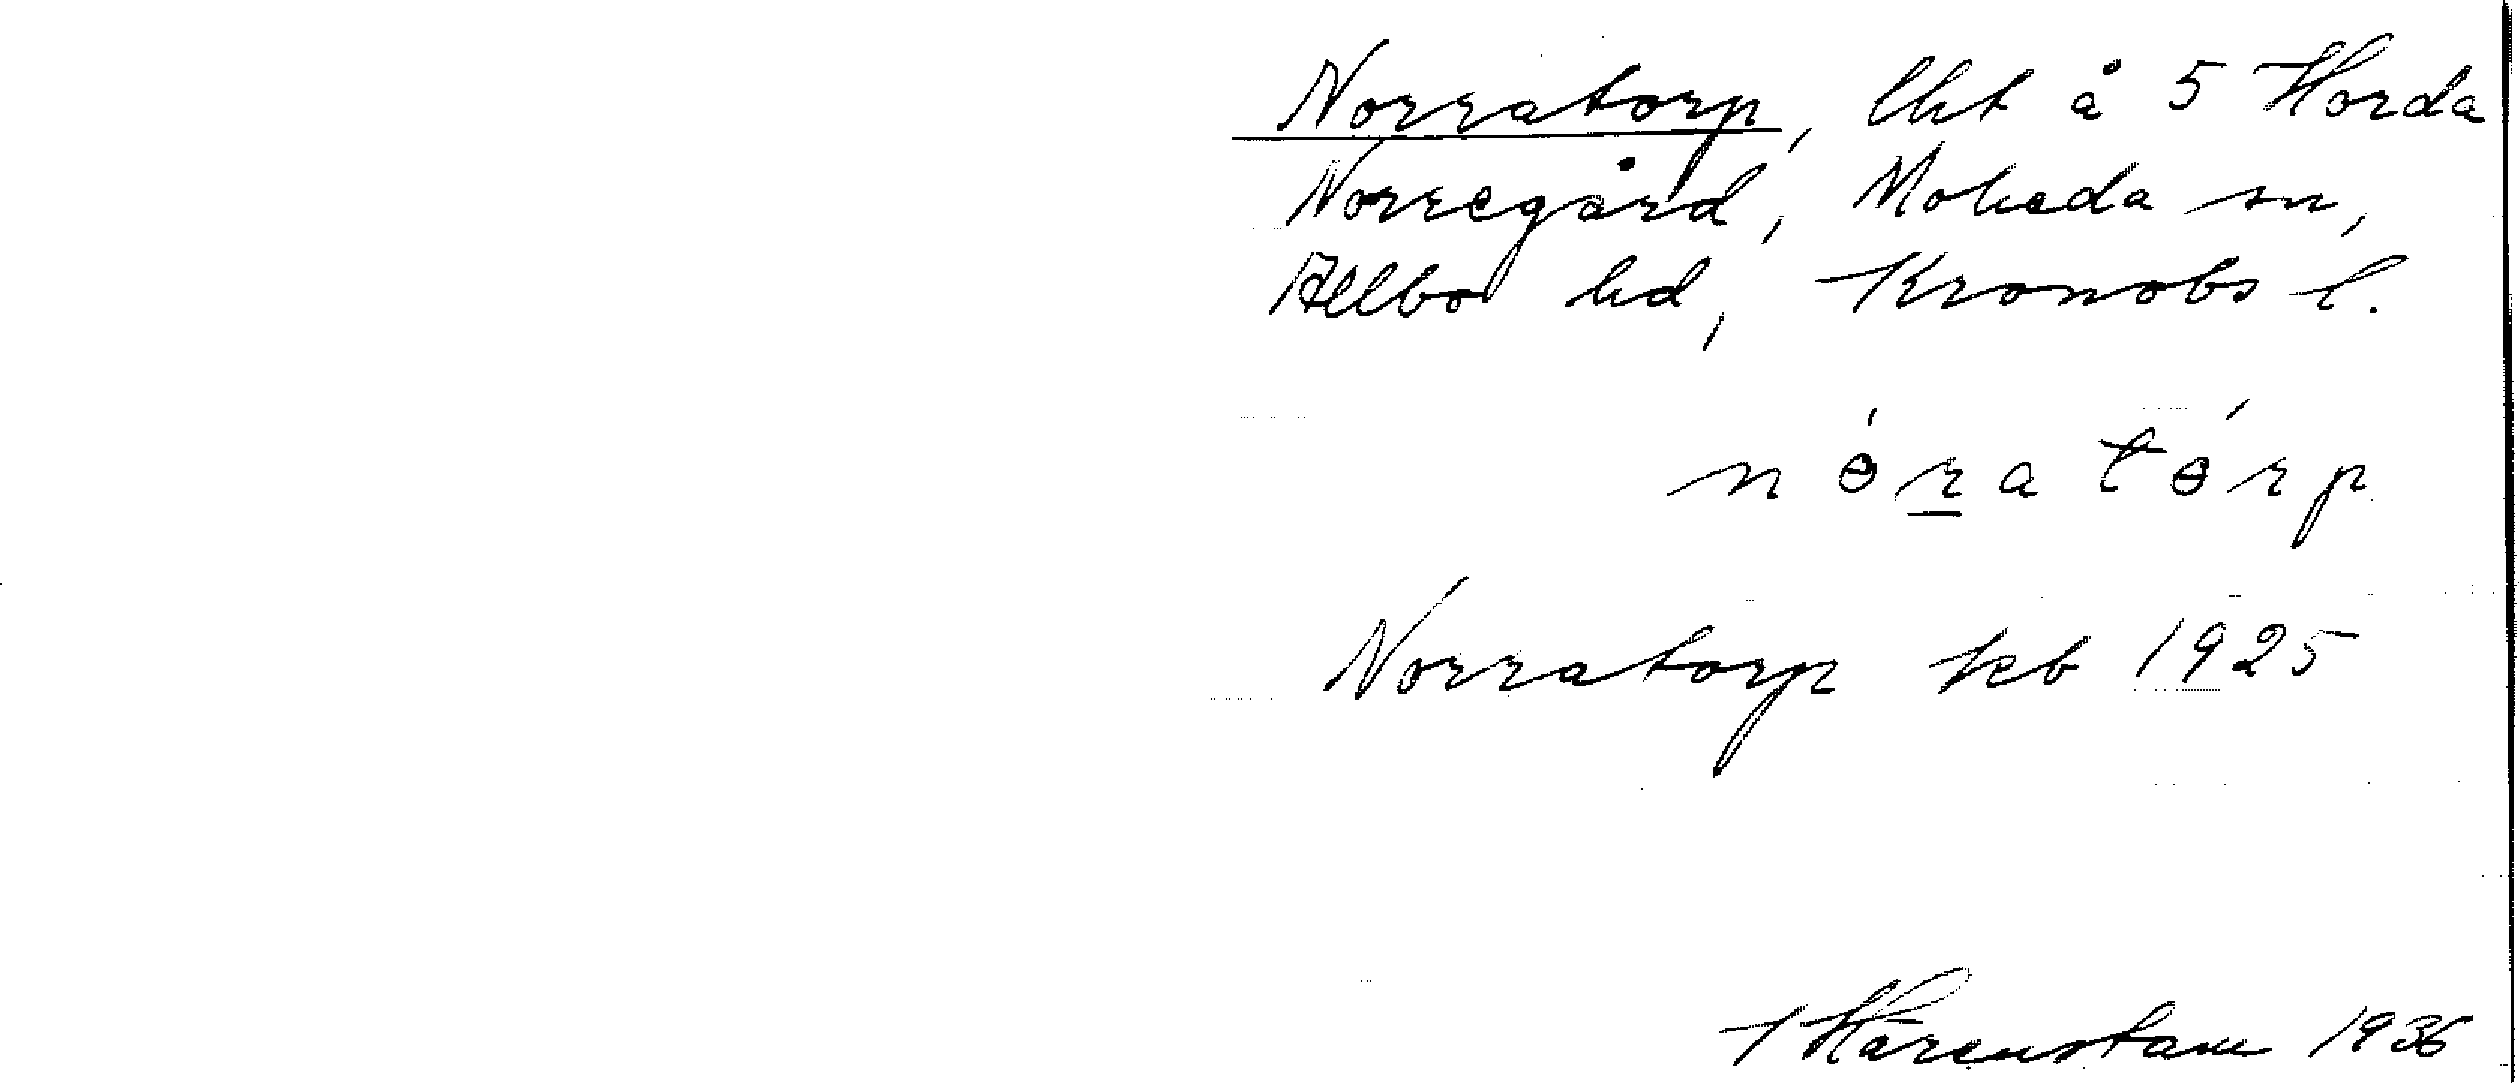 Norratorp, lht å 5 Horda
Norregård, Moheda sn,
Allbo hd, Kronobs l.
nɵ́r̲atɵ́rp
Norratorp kb 1925
Härenstam 1936